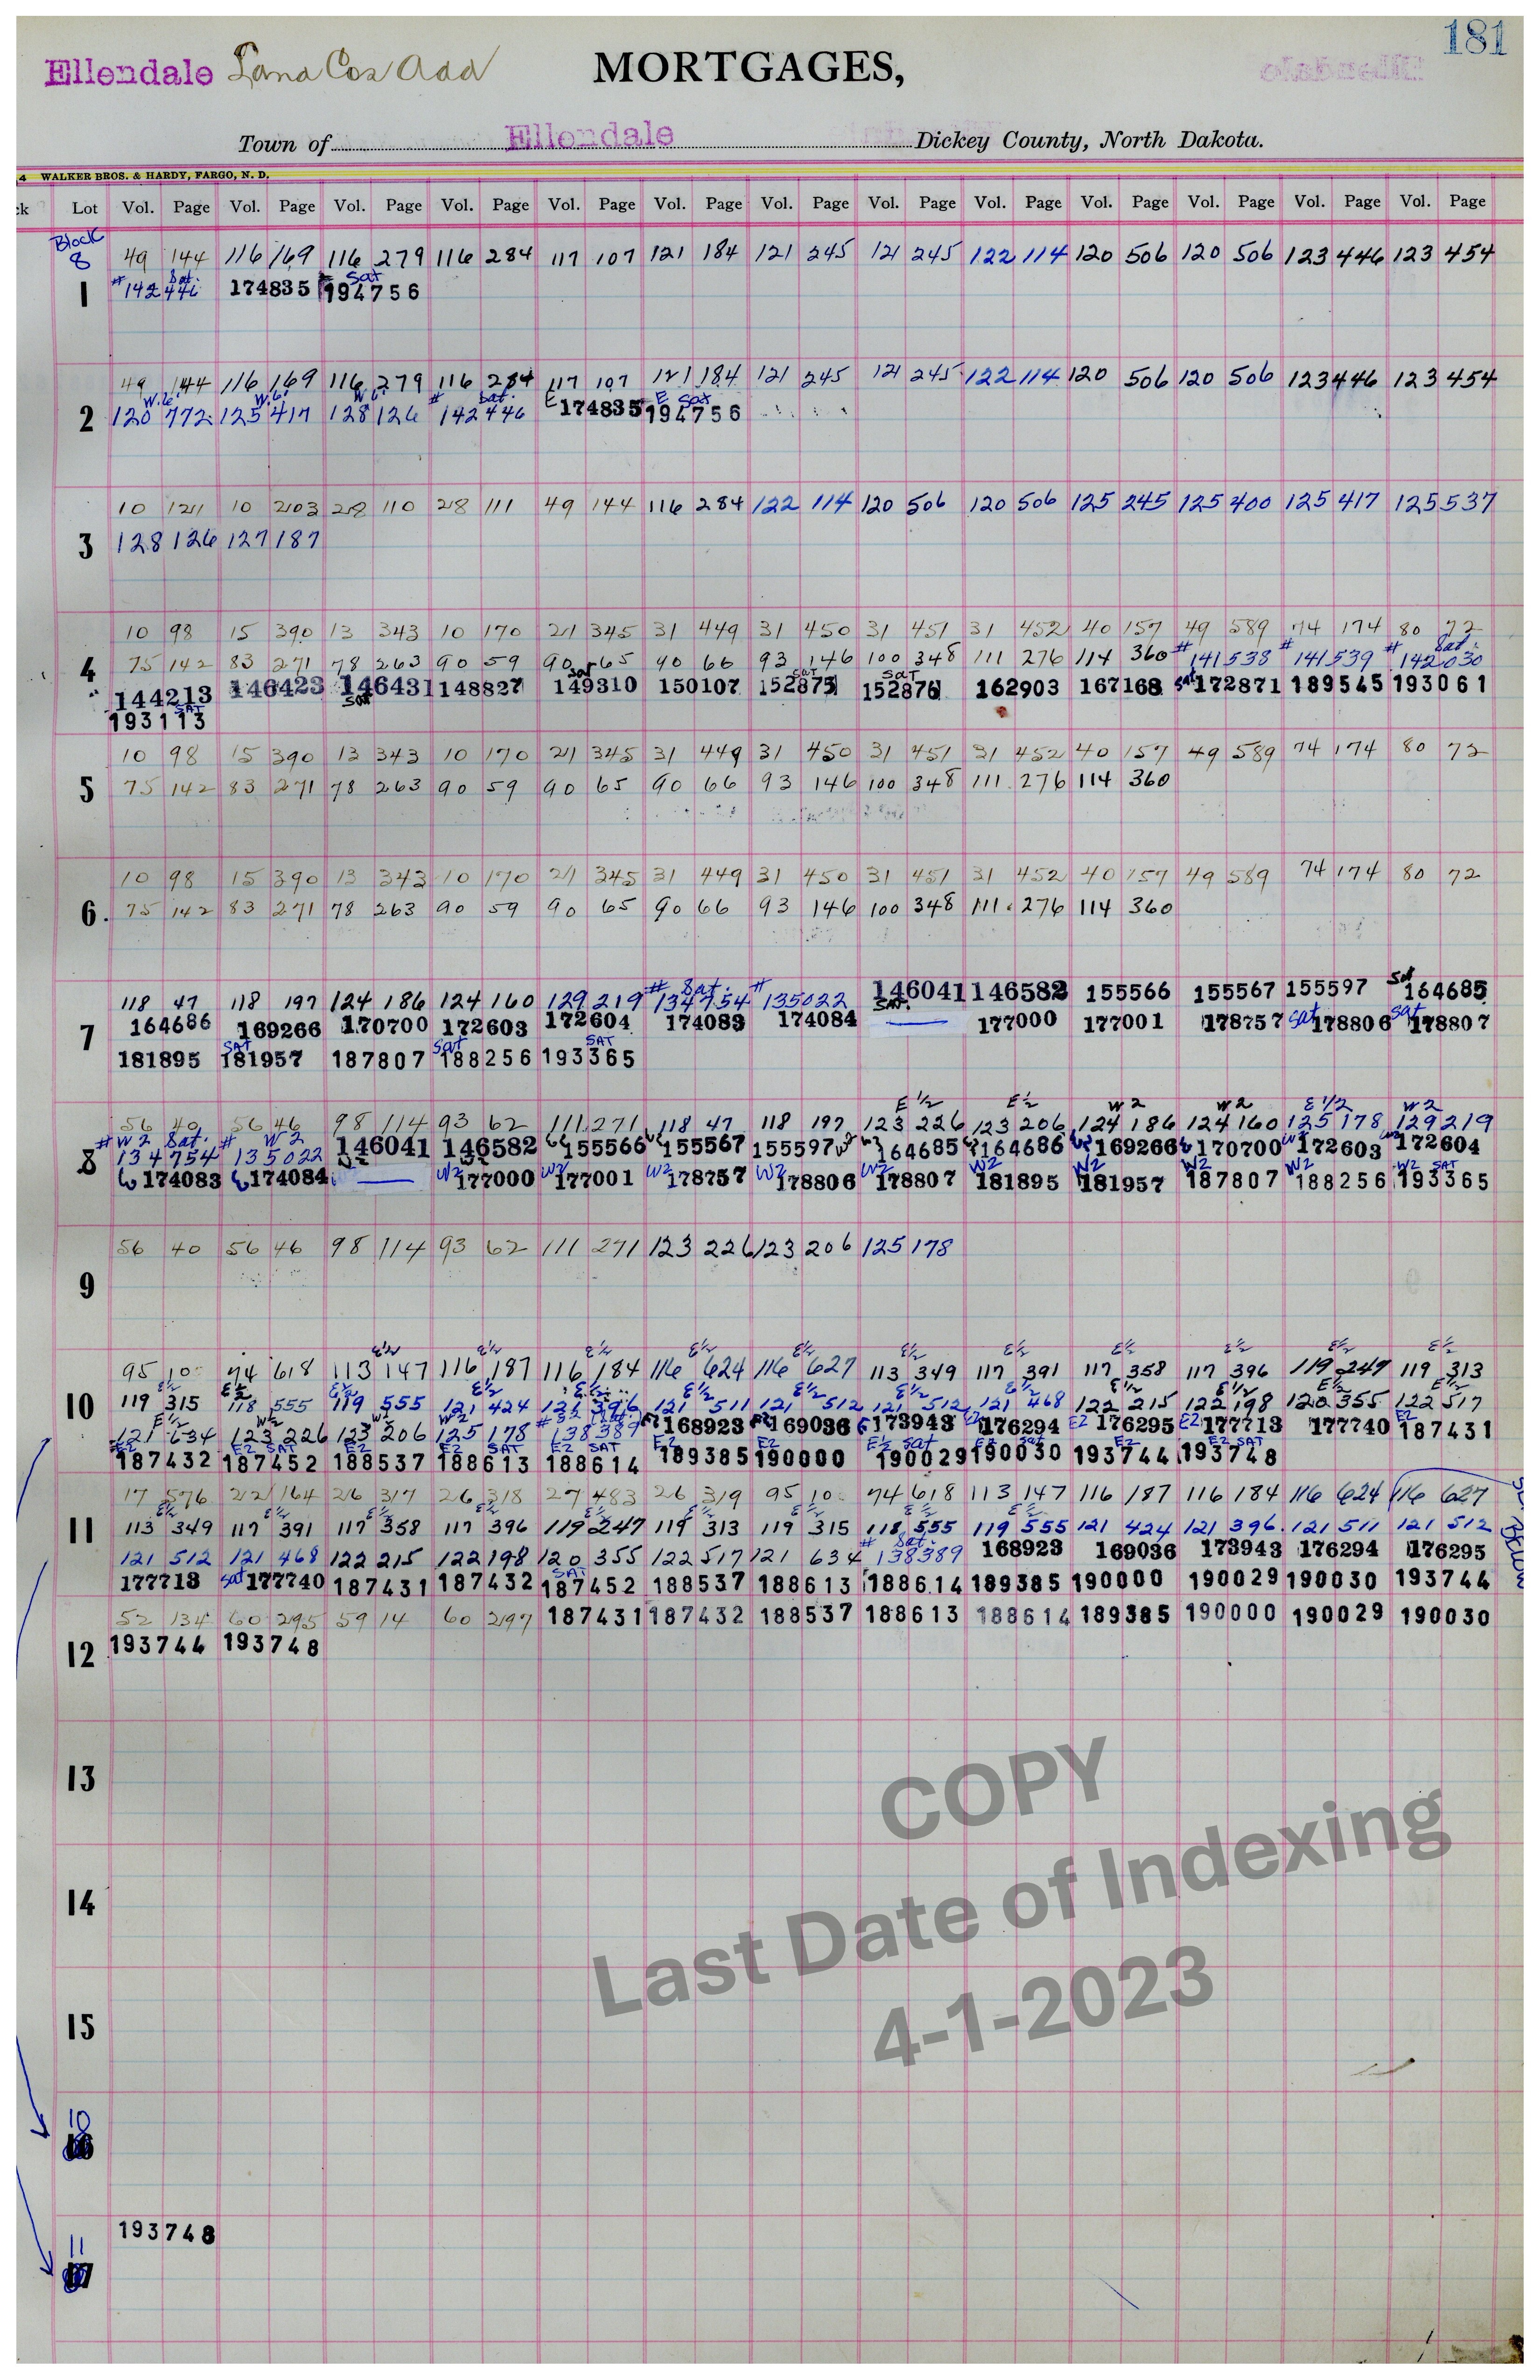 181
Ellendale Land Cos Add MORTGAGES,
Town of Ellendale Dickey County, North Dakota.
4 WALKER BROS. & HARDY, FARGO, N. D.
ck Lot Vol. Page Vol. Page Vol. Page Vol. Page Vol. Page Vol. Page Vol. Page Vol. Page Vol. Page Vol. Page Vol. Page Vol. Page Vol. Page
Block
8 49 144 116 169 116 279 116 284 117 107 121 184 121 245 121 245 122 114 120 506 120 506 123 446 123 454
# Sat. Sat
1 142446 174835 194756
49 144 116 169 116 279 116 284 117 107 121 184 121 245 121 245 122 114 120 506 120 506 123 446 123 454
W.6' W.6' W.6' # Sat. E E Sat
2 120 772 125 417 128 126 142446 174835 194756
10 121 10 203 28 110 28 111 49 144 116 284 122 114 120 506 120 506 125 245 125 400 125 417 125 537
3 128 126 127 187
10 98 15 390 13 343 10 170 21 345 31 449 31 450 31 451 31 452 40 157 49 589 74 174 80 72
4 75 142 83 271 78 263 90 59 90 65 90 66 93 146 100 348 111 276 114 360 # 141538 # 141539 # Sat. 142030
144213 146423 146431 Sat 148827 149310 Sat 150107 152875 Sat 152876 SAT 162903 167168 Sat 172871 189545 193061
193113 SAT
10 98 15 390 13 343 10 170 21 345 31 449 31 450 31 451 31 452 40 157 49 589 74 174 80 72
5 75 142 83 271 78 263 90 59 90 65 90 66 93 146 100 348 111 276 114 360
10 98 15 390 13 343 10 170 21 345 31 449 31 450 31 451 31 452 40 157 49 589 74 174 80 72
6. 75 142 83 271 78 263 90 59 90 65 90 66 93 146 100 348 111 276 114 360
118 47 118 197 124 186 124 160 129 219 # Sat. 134754 # 135022 146041 SAT. 146582 155566 155567 155597 Sat 164685
7 164686 169266 170700 172603 172604 174083 174084 — 177000 177001 178757 Sat 178806 Sat 178807
181895 SAT 181957 187807 Sat 188256 193365 SAT
E 1/2 E 1/2 W 2 W 2 E 1/2 W 2
56 40 56 46 98 114 93 62 111 271 118 47 118 197 123 226 123 206 124 186 124 160 125 178 129 219
# W 2 Sat. # W 2
8 134754 135022 146041 146582 155566 155567 155597 164685 164686 169266 170700 172603 172604
174083 174084 — W2 177000 W2 177001 W2 178757 W2 178806 W2 178807 W2 181895 W2 181957 W2 187807 W2 188256 W2 SAT 193365
56 40 56 46 98 114 93 62 111 271 123 226 123 206 125 178
9
E½ E½ E½ E½ E½ E½ E½ E½ E½ E½ E½
95 10 74 618 113 147 116 187 116 184 116 624 116 627 113 349 117 391 117 358 117 396 119 247 119 313
E½ E½ E½ E½ E½ E½ E½ E½ E½ E½ E½ E½ E½
10 119 315 118 555 119 555 121 424 121 396 121 511 121 512 121 512 121 468 122 215 122 198 120 355 122 517
E½ W½ W½ W½
121 634 123 226 123 206 125 178 138389 168923 169036 173943 E2 176294 E2 176295 E2 177713 177740 E2 187431
E2 187432 E2 SAT 187452 E2 188537 E2 SAT 188613 E2 SAT 188614 E2 189385 E2 190000 E½ Sat 190029 E2 Sat 190030 E2 193744 E2 SAT 193748
17 576 22 164 26 317 26 318 27 483 26 319 95 10 74 618 113 147 116 187 116 184 116 624 116 627
E½ E½ E½ E½ E½ E½ E½ E½ E½
11 113 349 117 391 117 358 117 396 119 247 119 313 119 315 118 555 119 555 121 424 121 396 121 511 121 512
121 512 121 468 122 215 122 198 120 355 122 517 121 634 # Sat. 138389 168923 169036 173943 176294 176295
177713 Sat 177740 187431 187432 SAT 187452 188537 188613 188614 189385 190000 190029 190030 193744
See Below
52 134 60 295 59 14 60 297 187431 187432 188537 188613 188614 189385 190000 190029 190030
12 193744 193748
13
COPY
Last Date of Indexing
4-1-2023
14
15
10
16
193748
11
17